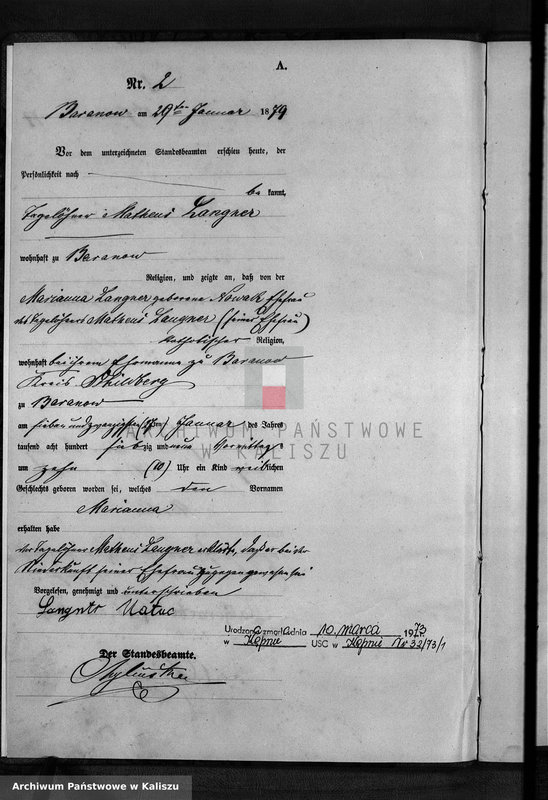 A.
Nr. 2
Baranow am 29ten Januar 1879
Vor dem unterzeichneten Standesbeamten erschien heute, der
Persönlichkeit nach
be kannt,
Tagelöhner Matheus Langner
wohnhaft zu Baranow
Religion, und zeigte an, daß von der
Marianna Langner geborene Nowak Ehefrau
des Tagelöhners Matheus Langner (seiner Ehefrau)
katholischer Religion,
wohnhaft bei ihrem Ehemanne zu Baranow
Kreis Schildberg
zu Baranow
am sieben und zwanzigsten (27ten) Januar des Jahres
tausend acht hundert siebzig und neun Vormittags
um zehn (10) Uhr ein Kind weiblichen
Geschlechts geboren worden sei, welches den Vornamen
Marianna
erhalten habe
der Tagelöhner Matheus Langner erklärte, daß er bei der
Niederkunft seiner Ehefrau zugegen gewesen sei
Vorgelesen, genehmigt und unterschrieben
Langner
Urodzona zmarła dnia 10. marca 1973
w Kępnie USC w Kępnie Nr 33/73/1
Der Standesbeamte.
ARCHIWUM PAŃSTWOWE
W KALISZU
Archiwum Państwowe w Kaliszu